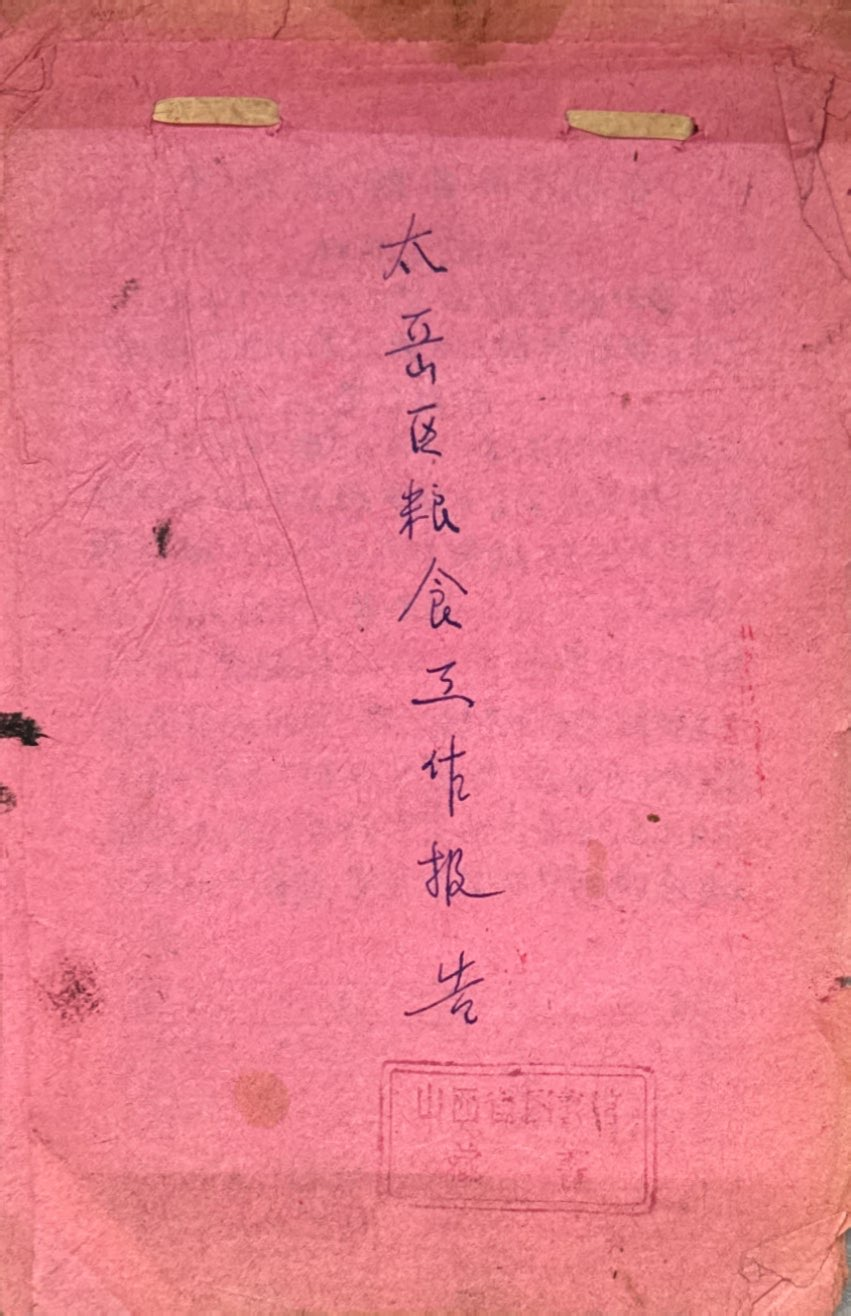 太岳区粮食工作报告
山西省